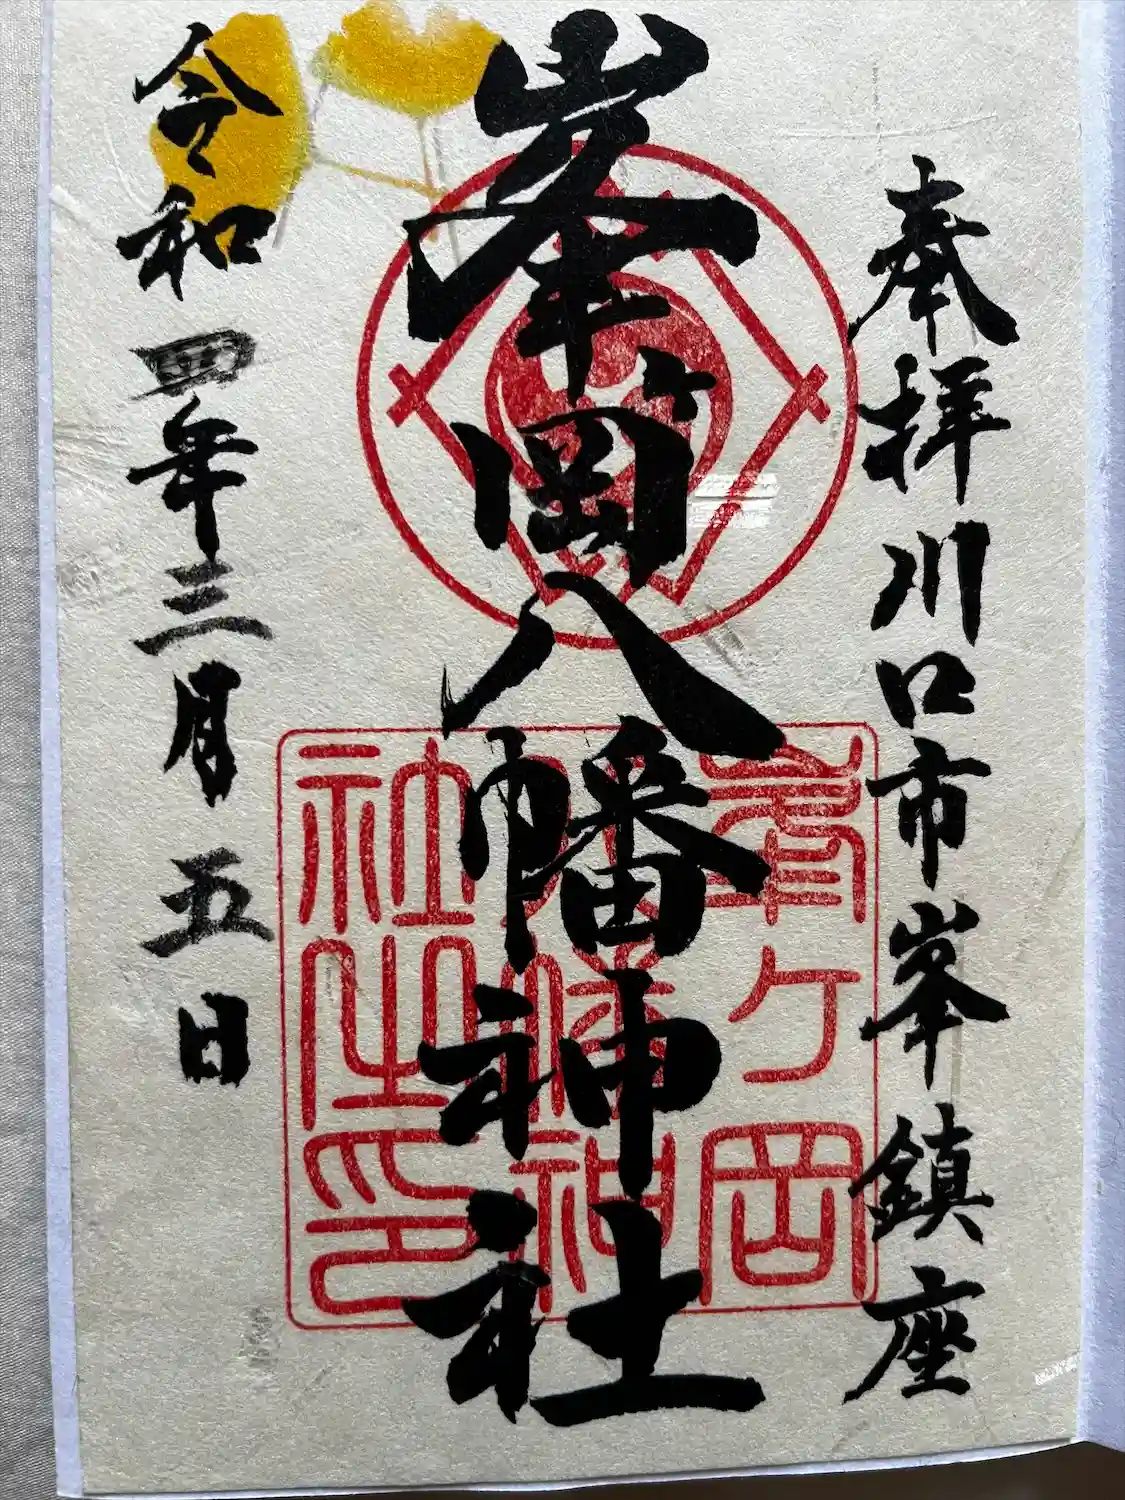 奉拝川口市峯鎮座
峯ヶ岡八幡神社
令和四年三月五日
峯ヶ岡
八幡神
社之印